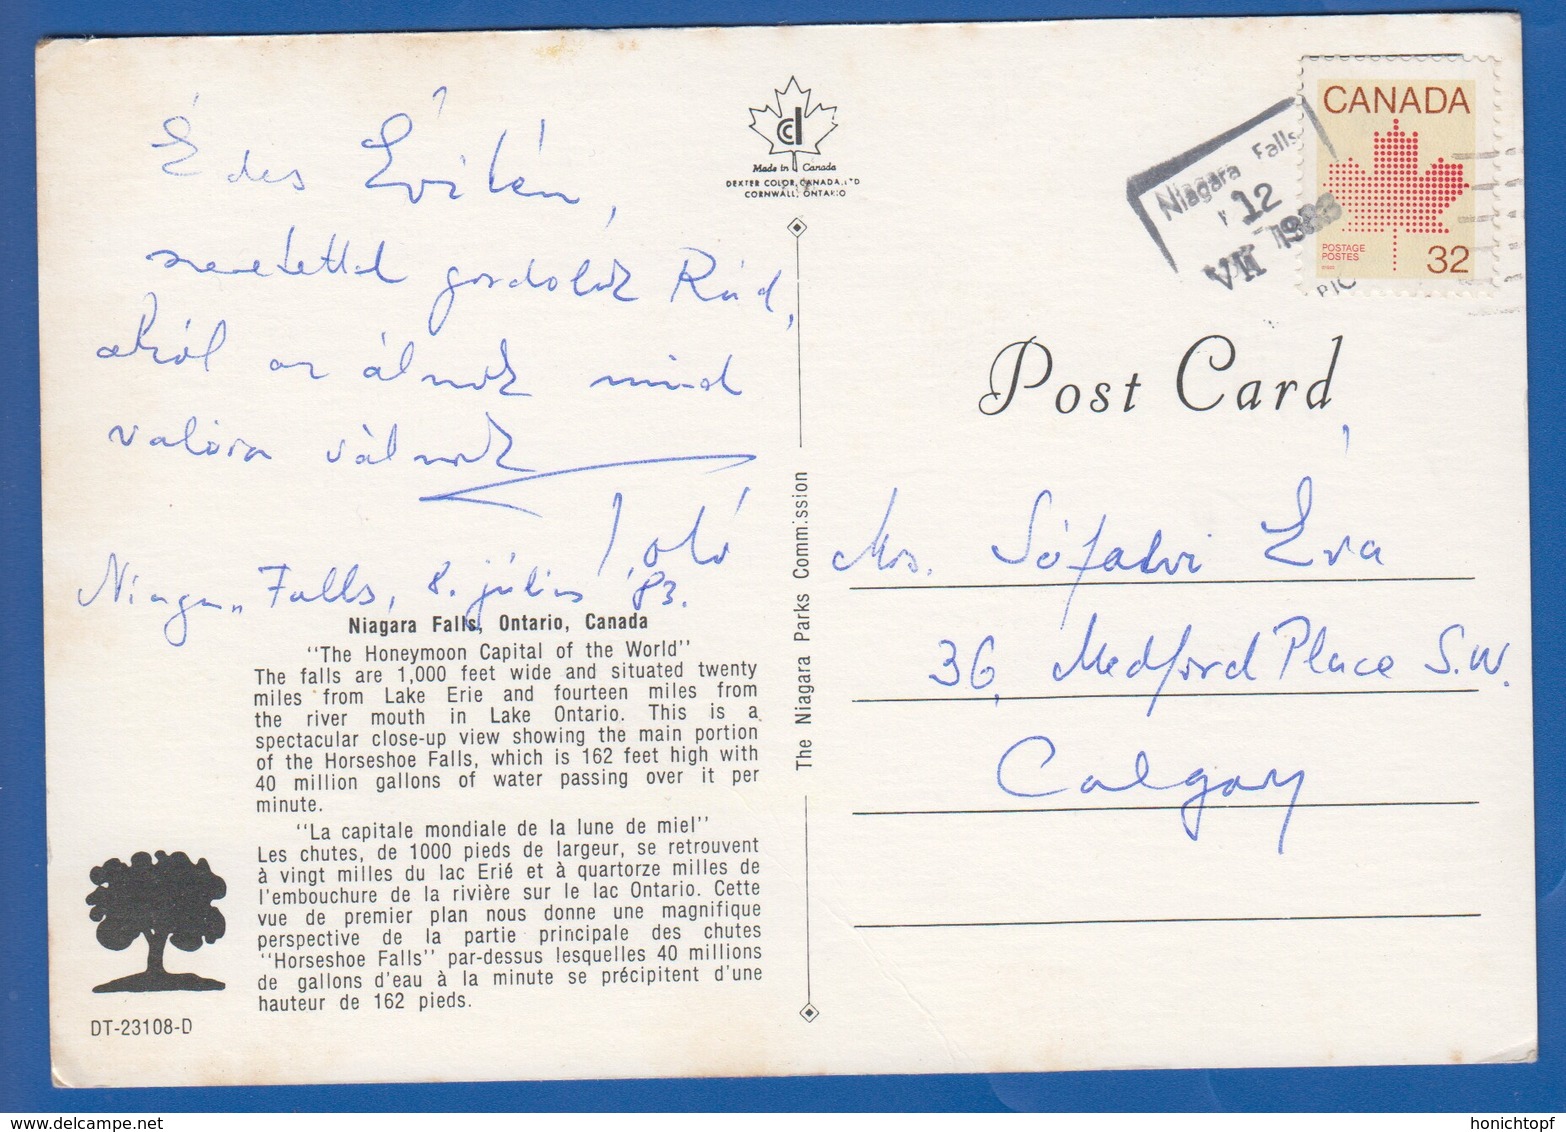 É des Évikém,
szeretettel gondolok Rád,
akiól az álmok mind
valóra válnak
Niagara Falls, 8. július '83.
Niagara Falls, Ontario, Canada
"The Honeymoon Capital of the World"
The falls are 1,000 feet wide and situated twenty
miles from Lake Erie and fourteen miles from
the river mouth in Lake Ontario. This is a
spectacular close-up view showing the main portion
of the Horseshoe Falls, which is 162 feet high with
40 million gallons of water passing over it per
minute.
"La capitale mondiale de la lune de miel"
Les chutes, de 1000 pieds de largeur, se retrouvent
à vingt milles du lac Erié et à quartorze milles de
l'embouchure de la rivière sur le lac Ontario. Cette
vue de premier plan nous donne une magnifique
perspective de la partie principale des chutes
"Horseshoe Falls" par-dessus lesquelles 40 millions
de gallons d'eau à la minute se précipitent d'une
hauteur de 162 pieds.
DT-23108-D
cd
Made in Canada
DEXTER COLOR, CANADA, LTD
CORNWALL, ONTARIO
The Niagara Parks Commission
Niagara Falls
12
VII 1983
CANADA
POSTAGE
POSTES
32
Post Card
Mrs. Sófalvi Éva
36, Medford Place S.W.
Calgary
www.delcampe.net
honichtopf